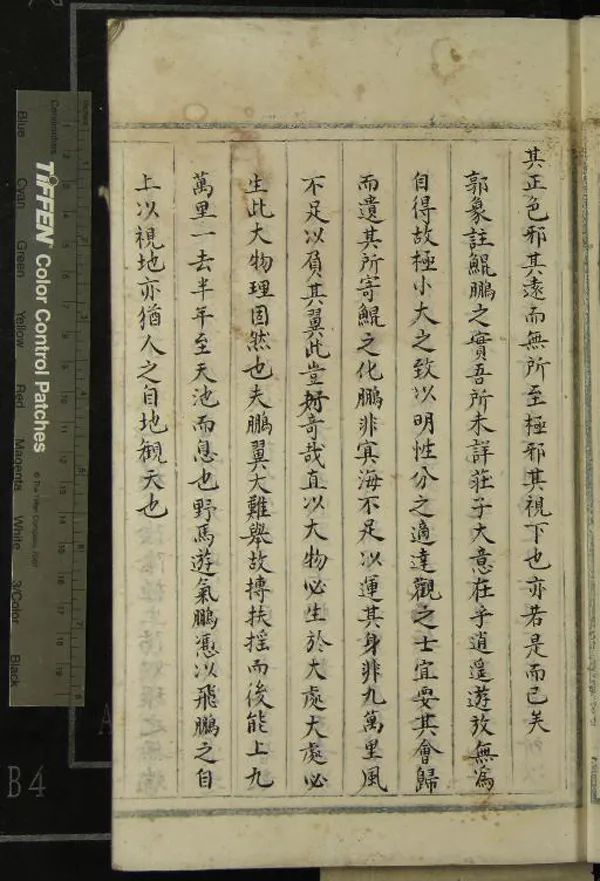 其正色邪其遠而無所至極邪其視下也亦若是而已矣
郭象註鯤鵬之實吾所未詳莊子大意在乎逍遥遊放無為
自得故極小大之致以明性分之適達觀之士宜要其會歸
而遺其所寄鯤之化鵬非冥海不足以運其身非九萬里風
不足以負其翼此豈好奇哉直以大物必生於大處大處必
生此大物理固然也夫鵬翼大難舉故摶扶搖而後能上九
萬里一去半年至天池而息也野馬遊氣鵬憑以飛鵬之自
上以視地亦猶人之自地觀天也
TIFFEN Color Control Patches
© The Tiffen Company, 2007
Centimetres
Inches
Blue Cyan Green Yellow Red Magenta White 3/Color Black
B4
A